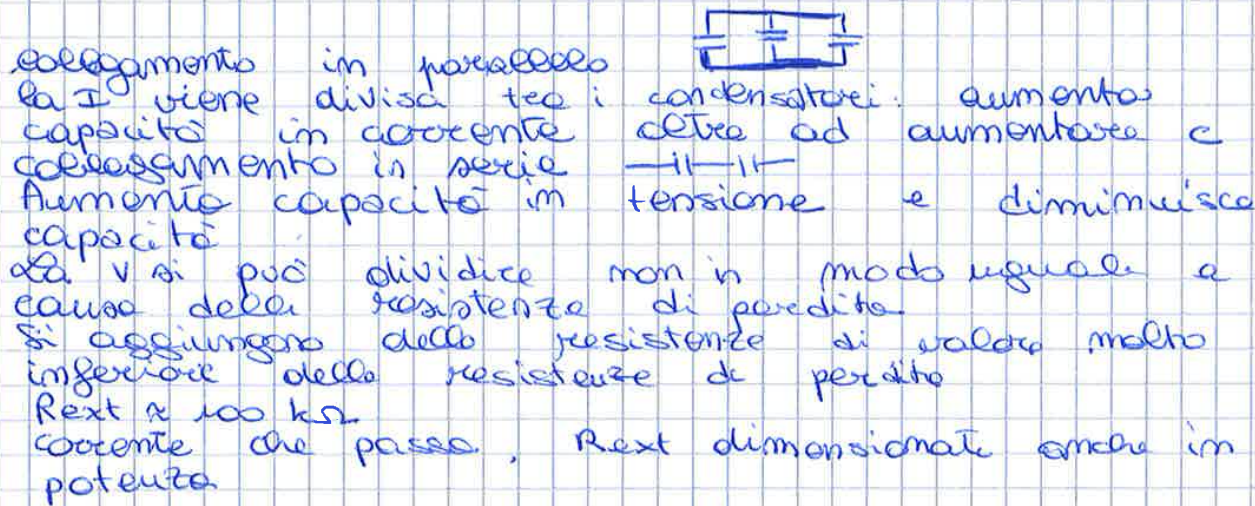 collegamento in parallelo
la I viene divisa tra i condensatori. aumento
capacità in corrente oltre ad aumentare C
collegamento in serie
Aumento capacità in tensione e diminuisce
capacità
La V si può dividire non in modo uguale a
causa delle resistenze di perdita
Si aggiungono delle resistenze di valore molto
inferiore delle resistenze di perdita
Rext ≈ 100 kΩ
corrente che passa, Rext dimensionate anche in
potenza